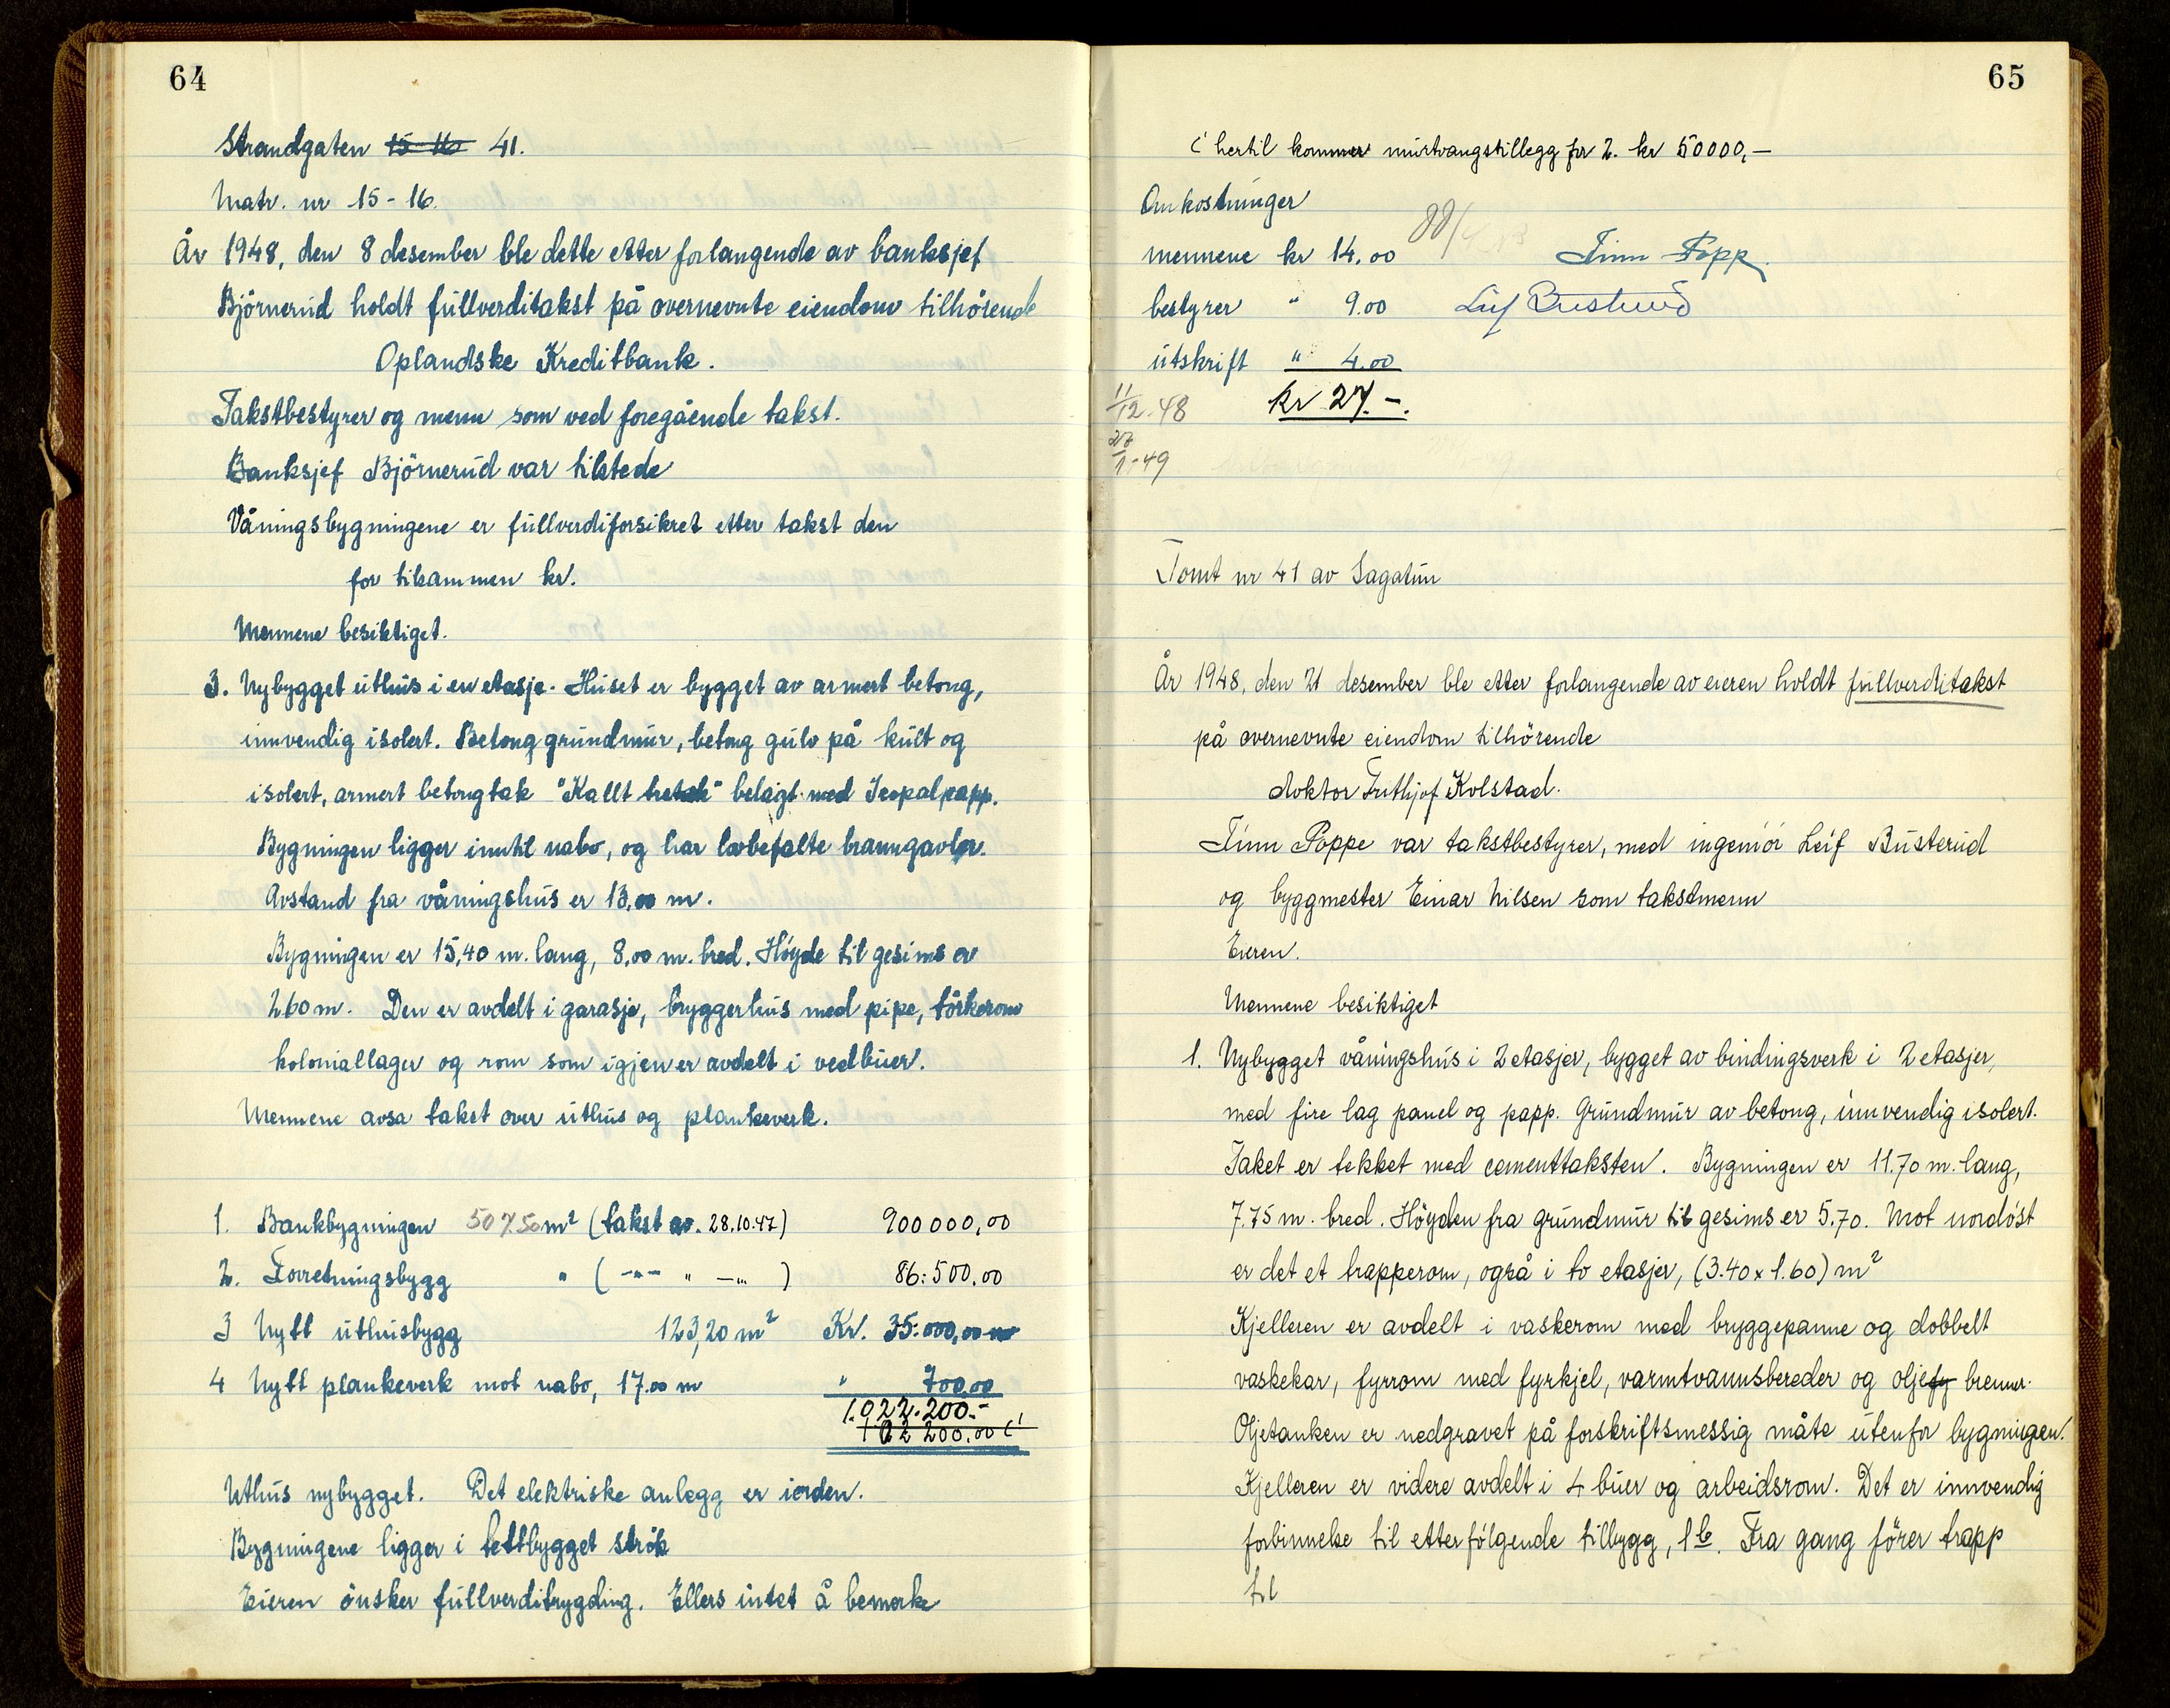 64
Strandgaten 15-16 41.
Matr. nr 15-16.
År 1948, den 8 desember ble dette etter forlangende av banksjef
Björnerud holdt fullverditakst på overnevnte eiendom tilhörende
Oplandske Kreditbank.
Takstbestyrer og menn som ved foregående takst.
Banksjef Björnerud var tilstede
Våningsbygningene er fullverdiforsikret etter takst den
for tilsammen kr.
Mennene besiktiget.
3. Nybygget uthus i en etasje. Huset er bygget av armert betong,
innvendig isolert. Betong grunnmur, betong gulv på kult og
isolert, armert betongtak "Kallt tretak" belagt med Icopalpapp.
Bygningen ligger inntil nabo, og har lovbefalte branngavler.
Avstand fra våningshus er 13,00 m.
Bygningen er 15,40 m. lang, 8,00 m. bred. Höyde til gesims er
2.60 m. Den er avdelt i garasje, bryggerhus med pipe, törkerom
koloniallager og rom som igjen er avdelt i vedbuer.
Mennene avsa takst over uthus og plankeverk.
1. Bankbygningen 507.50 m² (takst av. 28.10.47) 900000,00
2. Forretningsbygg " ( -"- " -"- ) 86:500,00
3 Nytt uthusbygg 123,20 m² Kr. 35:000,00
4 Nytt plankeverk mot nabo, 17.00 m " 700,00
1.022.200.-
1 02 200.00 (1
Uthus nybygget. Det elektriske anlegg er iorden.
Bygningene ligger i tettbygget strök
Eieren önsker fullverditrygding. Ellers intet å bemerke
65
(1 hertil kommer murtvangstillegg for 2. kr 50000,-
Omkostninger
mennene kr 14,00 Finn Popp
bestyrer " 9.00 Leif Busterud
utskrift " 4.00
11/12-48 kr 27.-.
27/1-49
Tomt nr 41 av Sagatun
År 1948, den 21 desember ble etter forlangende av eieren holdt fullverditakst
på overnevnte eiendom tilhörende
doktor Frithjof Kolstad.
Finn Poppe var takstbestyrer, med ingeniör Leif Busterud
og byggmester Einar Nilsen som takstmenn
Eieren.
Mennene besiktiget
1. Nybygget våningshus i 2 etasjer, bygget av bindingsverk i 2 etasjer,
med fire lag panel og papp. Grundmur av betong, innvendig isolert.
Taket er tekket med cementtaksten. Bygningen er 11.70 m. lang,
7.75 m. bred. Höyden fra grundmur til gesims er 5.70. Mot nordöst
er det et trapperom, også i to etasjer, (3.40 x 1.60) m²
Kjelleren er avdelt i vaskerom med bryggepanne og dobbelt
vaskekar, fyrrom med fyrkjel, varmtvannsbereder og oljefy brenner.
Oljetanken er nedgravet på forskriftsmessig måte utenfor bygningen.
Kjelleren er videre avdelt i 4 buer og arbeidsrom. Det er innvendig
forbinnelse til etterfölgende tilbygg, 1b. Fra gang förer trapp
til